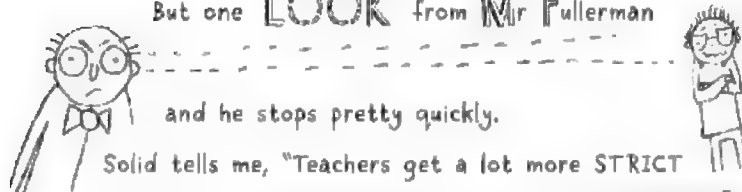 But one LOOK from Mr Fullerman
and he stops pretty quickly.
Solid tells me, "Teachers get a lot more STRICT